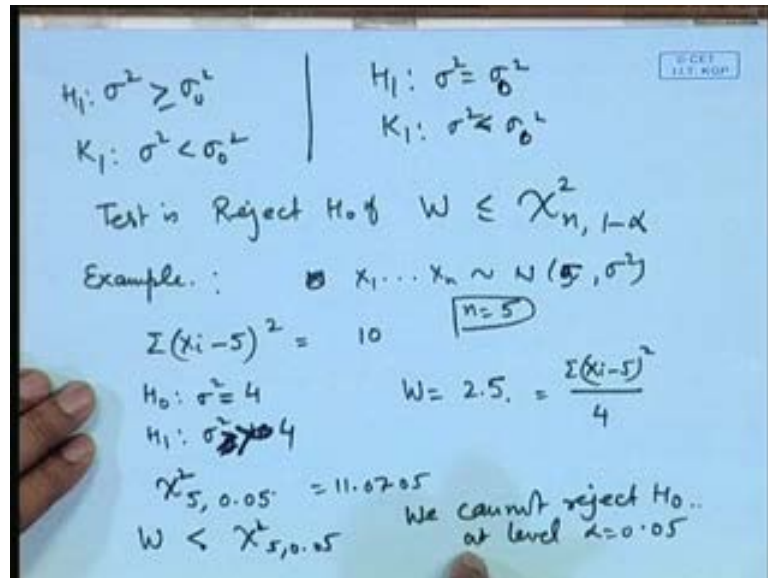 H₁: σ² ≥ σ₀²
K₁: σ² < σ₀²
H₁: σ² = σ₀²
K₁: σ² < σ₀²
I.I.T. KGP
Test is Reject H₀ if W ≤ χ²ₙ, ₁₋α
Example.: x₁ ... xₙ ~ N(5, σ²)
Σ(xᵢ-5)² = 10
n=5
H₀: σ² = 4
W = 2.5. = Σ(xᵢ-5)² / 4
H₁: σ² > 4
χ²₅, ₀.₀₅ = 11.0705
W < χ²₅, ₀.₀₅
We cannot reject H₀..
at level α=0.05